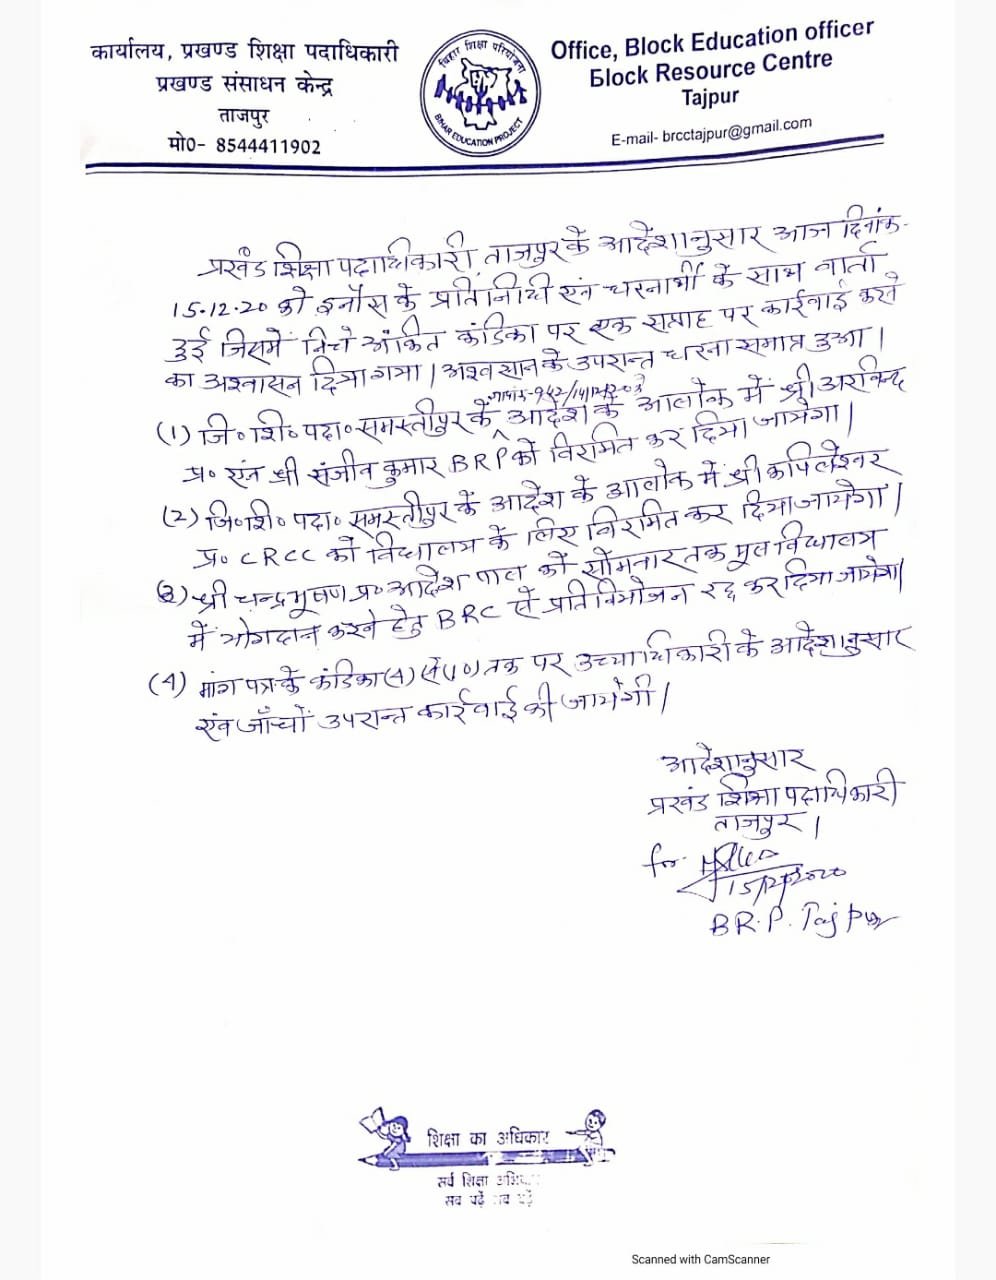 कार्यालय, प्रखण्ड शिक्षा पदाधिकारी
प्रखण्ड संसाधन केन्द्र
ताजपुर
मो०- 8544411902
बिहार शिक्षा परियोजना
BIHAR EDUCATION PROJECT
Office, Block Education officer
Block Resource Centre
Tajpur
E-mail- brcctajpur@gmail.com
प्रखंड शिक्षा पदाधिकारी, ताजपुर के आदेशानुसार आज दिनांक-
15.12.20 को इनौस के प्रतिनिधी एवं धरनार्थी के साथ वार्ता
हुई जिसमें निचे अंकित कंडिका पर एक सप्ताह पर कार्रवाई करने
का अश्वासन दिया गया। अश्वसान के उपरान्त धरना समाप्त हुआ।
(1) जि०शि०पदा० समस्तीपुर के आदेश के आलोक में श्री अरविन्द
प्र० एंव श्री संजीव कुमार BRP को विरमित कर दिया जायेगा।
(2) जि०शि०पदा० समस्तीपुर के आदेश के आलोक में श्री कपिलेश्वर
प्र० CRCC को विद्यालय के लिए विरमित कर दिया जायेगा।
(3) श्री चन्द्रभूषण प्र० आदेश पाल को सोमवार तक मूल विद्यालय
में योगदान करने हेतु BRC से प्रतिनियोजन रद्द कर दिया जायेगा।
(4) मांग पत्र के कंडिका (4) से (10) तक पर उच्चाधिकारी के आदेशानुसार
एंव जाँचों उपरान्त कार्रवाई की जायेगी।
आदेशानुसार
प्रखंड शिक्षा पदाधिकारी
ताजपुर।
for
15/12/2020
B.R.P. Tajpur
शिक्षा का अधिकार
सर्व शिक्षा
सब पढ़ें
Scanned with CamScanner